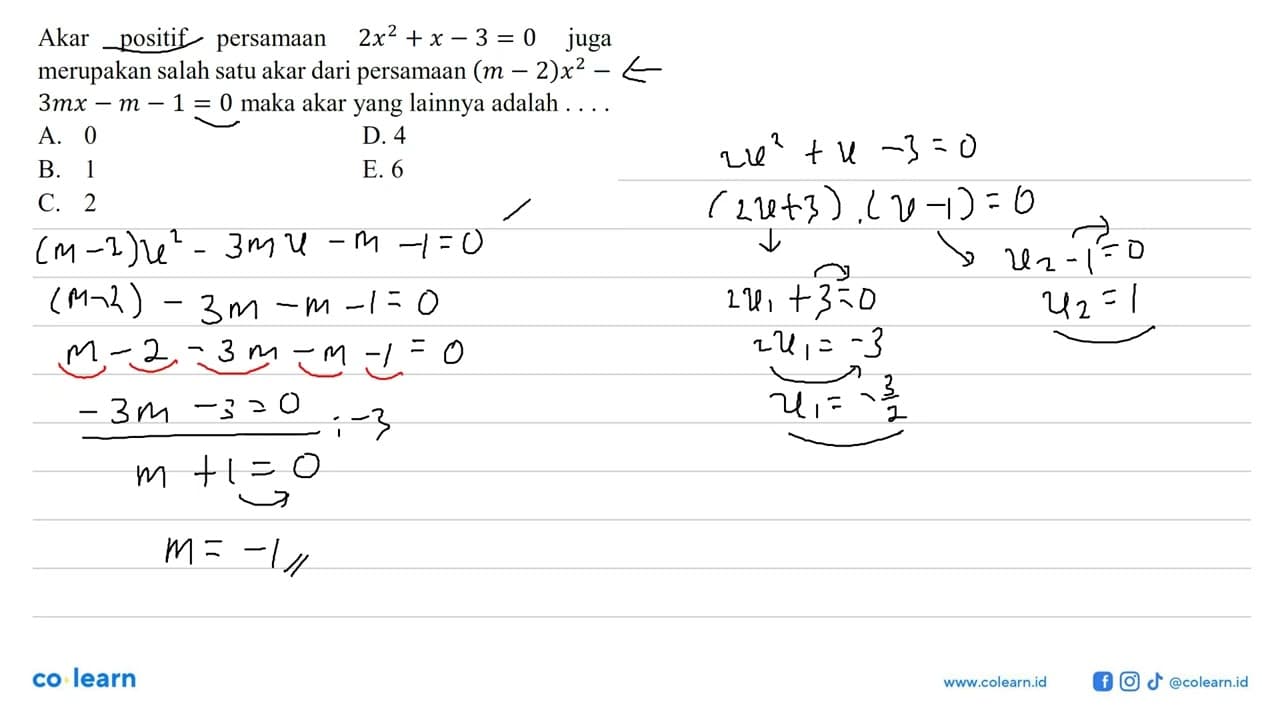 Akar positif persamaan 2x² + x − 3 = 0 juga
merupakan salah satu akar dari persamaan (m − 2)x² − ←
3mx − m − 1 = 0 maka akar yang lainnya adalah . . . .
A. 0 D. 4
B. 1 E. 6
C. 2
(m-2)x² - 3mx - m - 1 = 0
(m-2) - 3m - m - 1 = 0
m - 2 - 3m - m - 1 = 0
-3m - 3 = 0 : -3
m + 1 = 0
m = -1 //
2x² + x - 3 = 0
(2x+3) . (x-1) = 0
↓ ↘ x₂ - 1 = 0
2x₁ + 3 = 0 x₂ = 1
2x₁ = -3
x₁ = -3/2
co learn
www.colearn.id @colearn.id